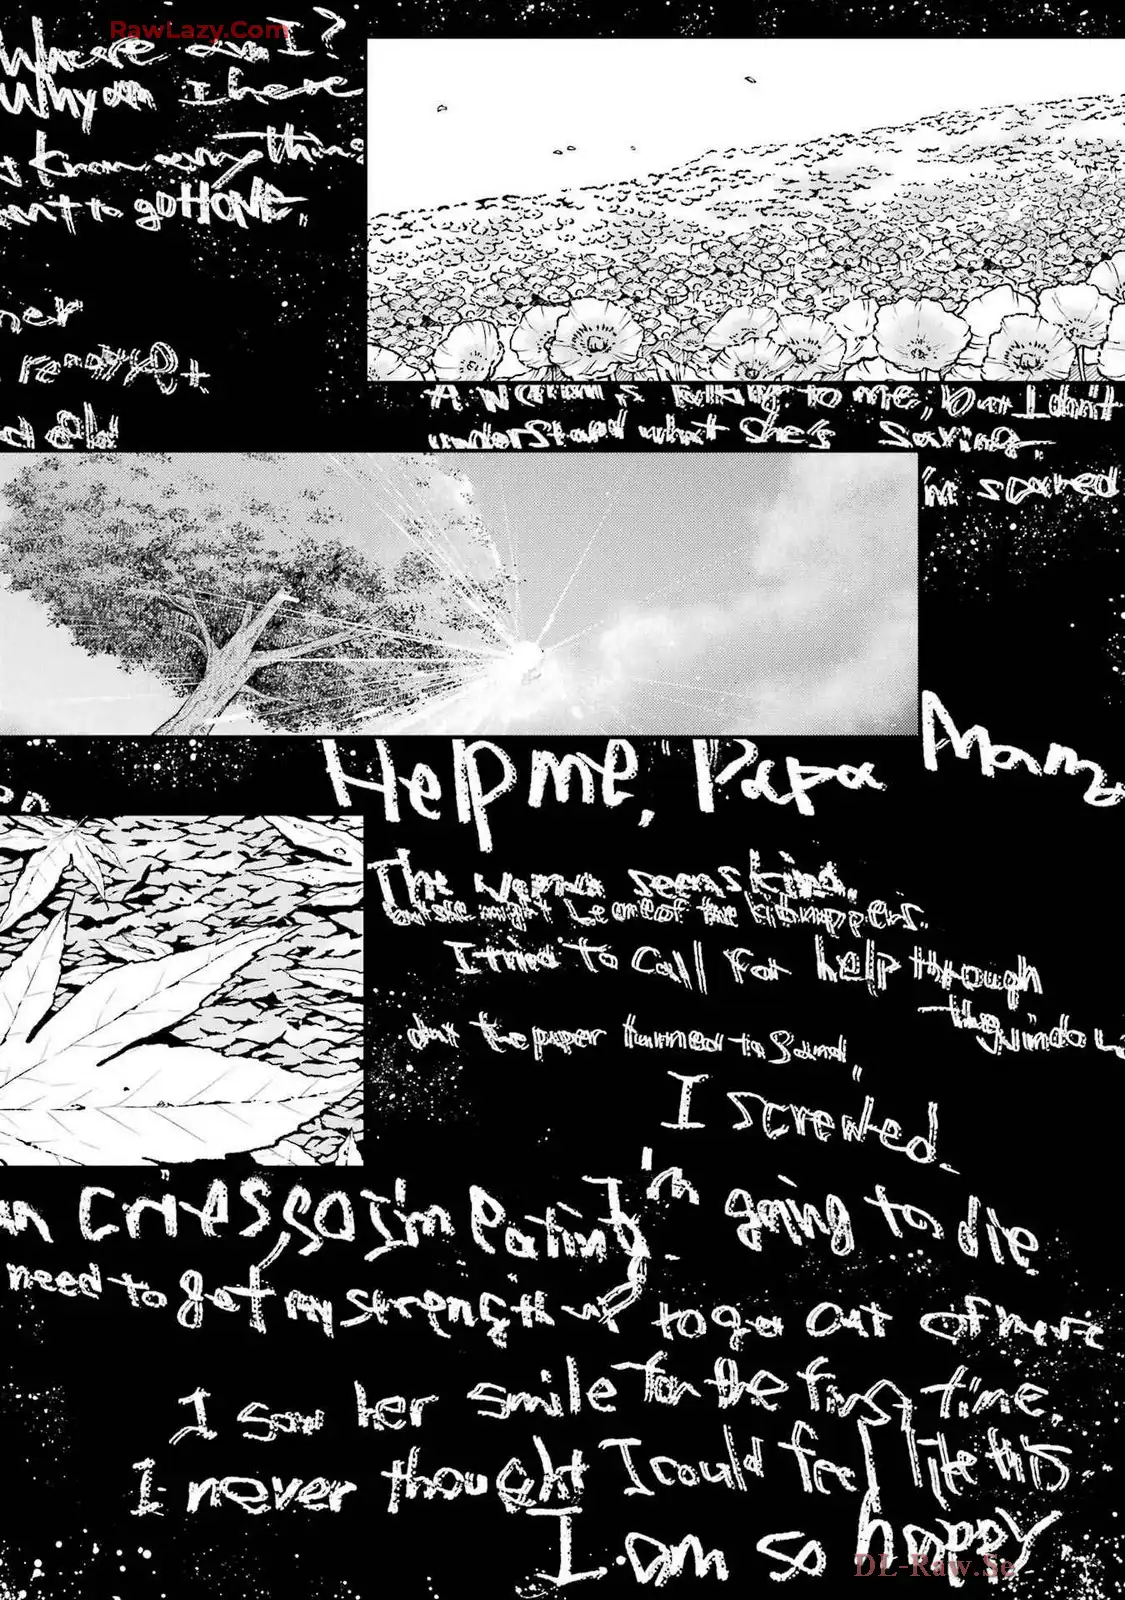 RawLazy.Com
Where am I?
Why am I here
t know anything
ant to go HOME.
ner
A woman is talking to me, but I don't
understand what she's saying.
'm scared
Help me, Papa Mama
on
The woman seems kind.
but she might be one of the kidnappers.
I tried to call for help through
the window
but the paper turned to sand.
I screwed.
an cries, so I'm eating.
I'm going to die
need to get my strength up to go out of here
I saw her smile for the first time.
I never thought I could feel like this.
I am so happy
DL-Raw.Se